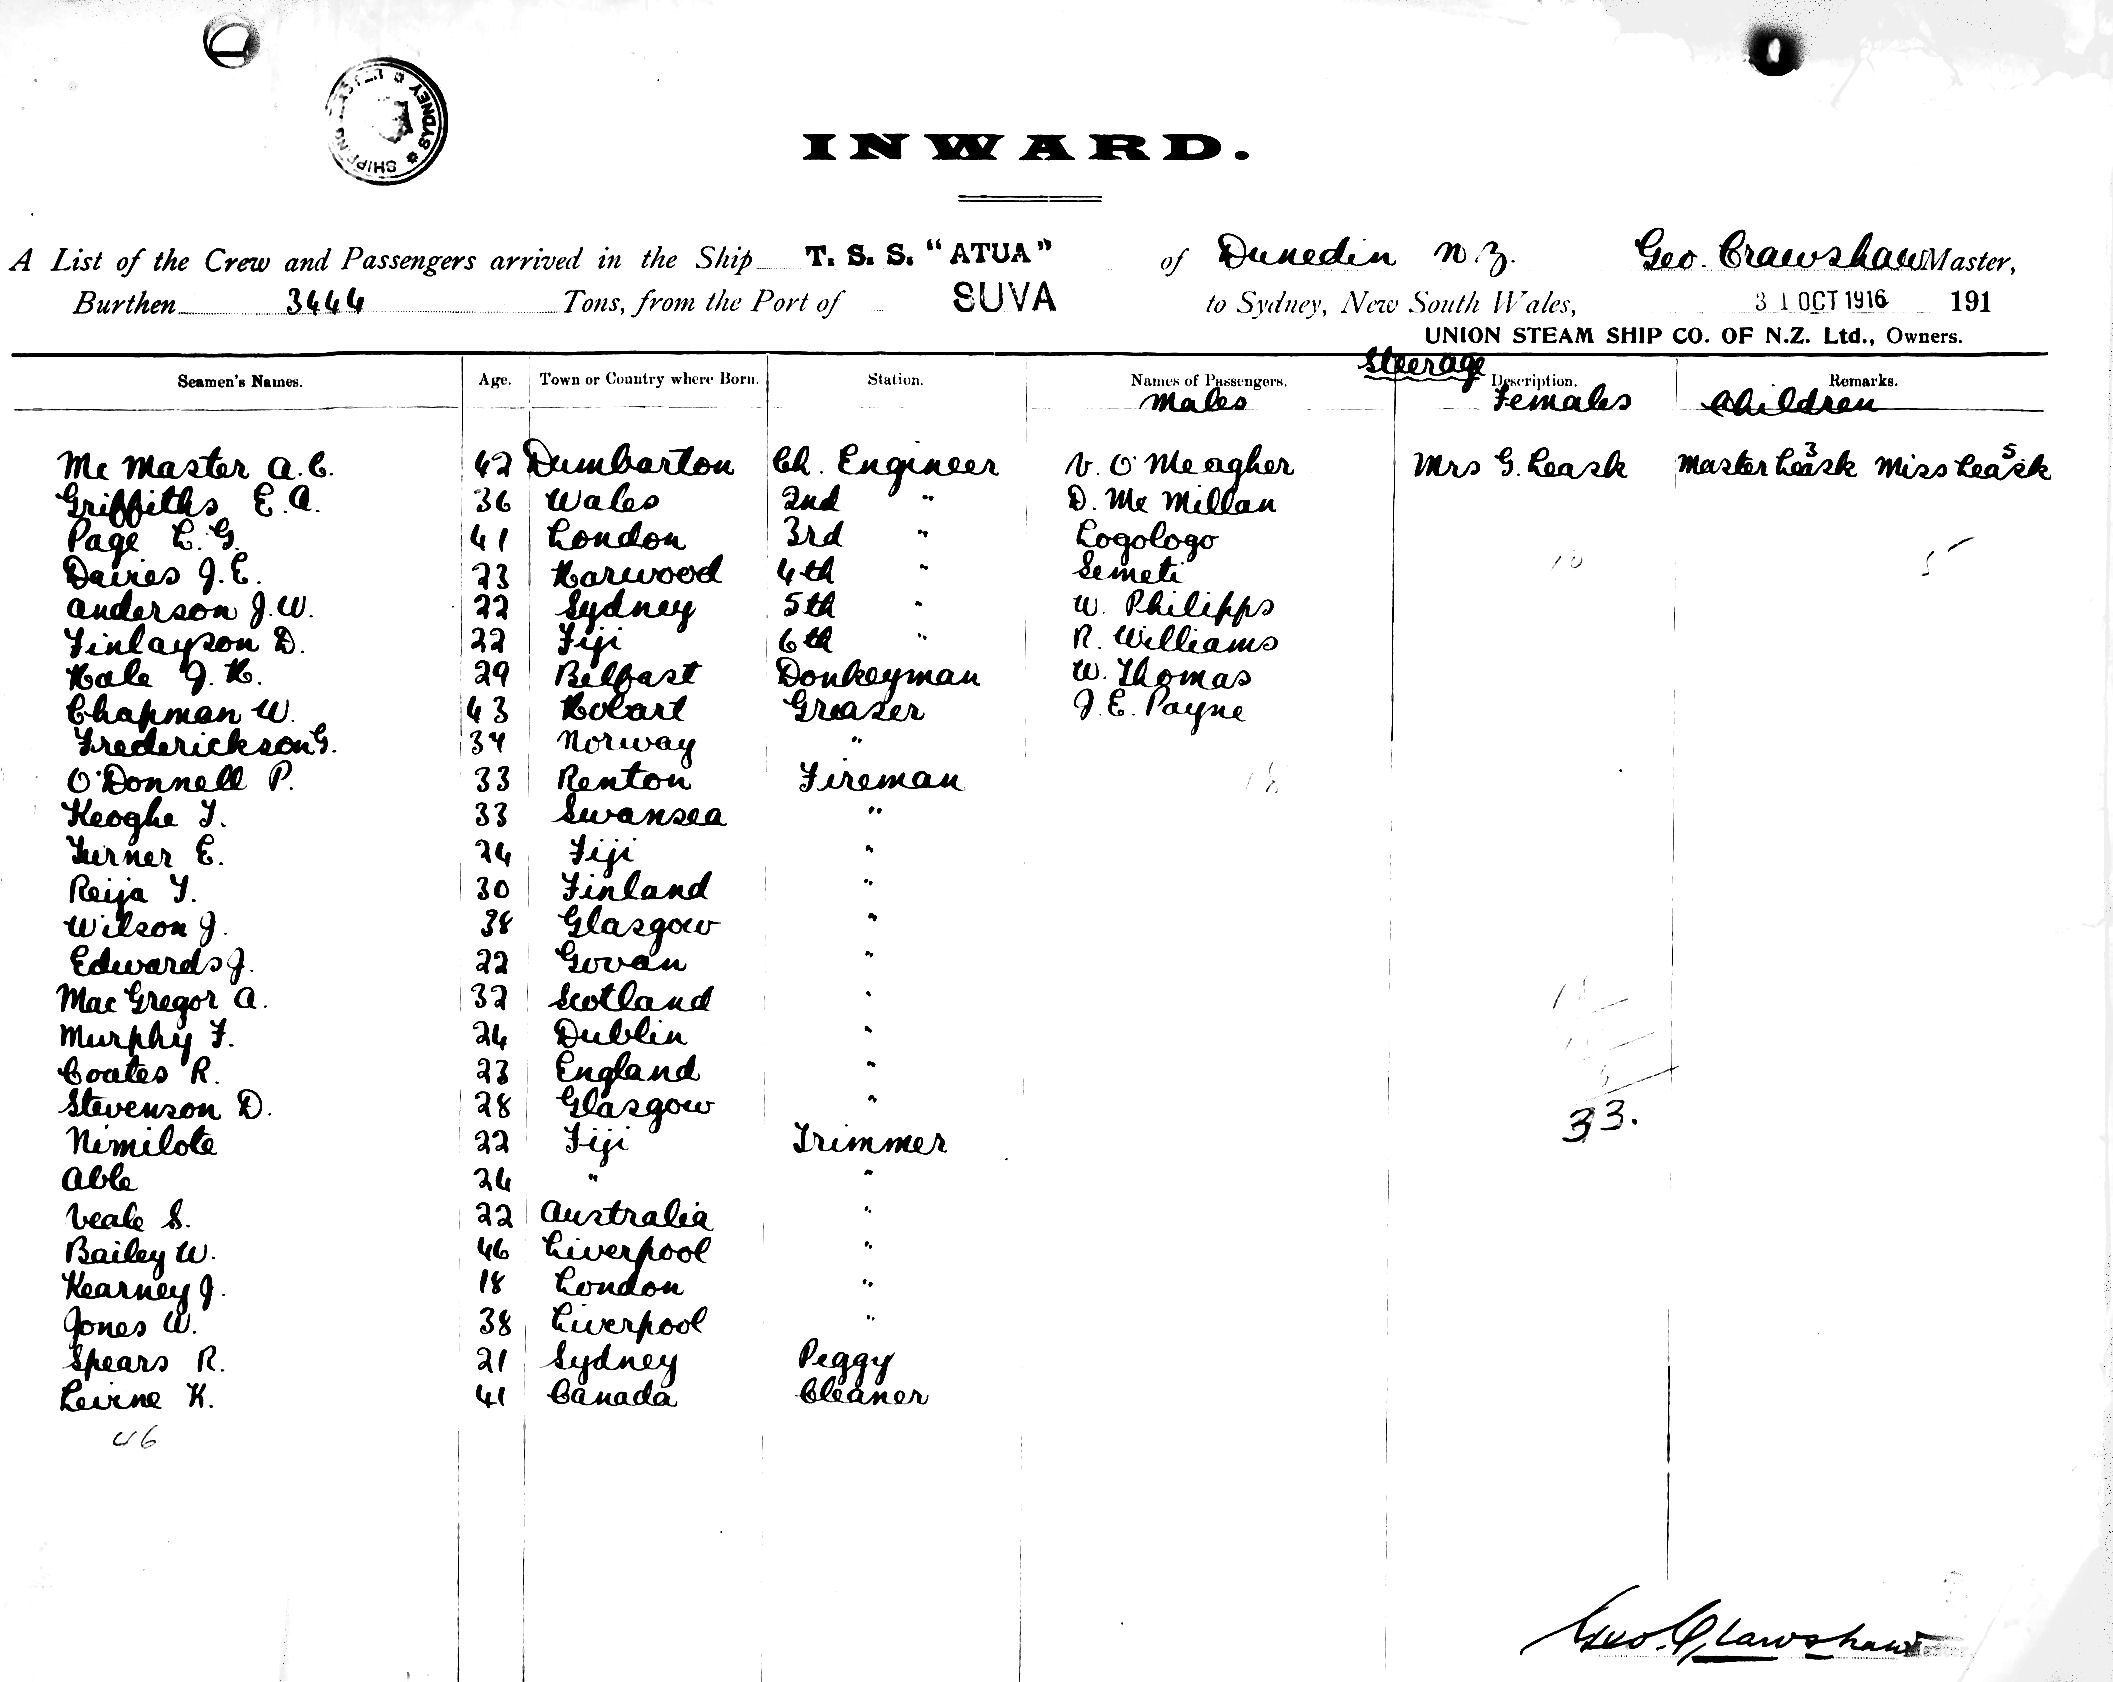 SHIPPING SYDNEY
INWARD.
A List of the Crew and Passengers arrived in the Ship T. S. S. "ATUA" of Dunedin N.Z. Geo. Crawshaw Master,
Burthen 3444 Tons, from the Port of SUVA to Sydney, New South Wales, 31 OCT 1916 191
UNION STEAM SHIP CO. OF N.Z. Ltd., Owners.
Steerage
Seamen's Names. Age. Town or Country where Born. Station. Names of Passengers. Description. Remarks.
Males Females Children
Mc Master A.C. 42 Dumbarton Ch. Engineer V. O'Meagher Mrs G. Leask Master Leask 3 Miss Leask 5
Griffiths E.A. 36 Wales 2nd " D. Mc Millan
Page L.G. 41 London 3rd " Logologo
Davies J.E. 23 Harwood 4th " Semeti 10 5
Anderson J.W. 22 Sydney 5th " W. Philipps
Finlayson D. 22 Fiji 6th " R. Williams
Hale J.H. 29 Belfast Donkeyman W. Thomas
Chapman W. 43 Hobart Greaser J.E. Payne
Frederickson G. 34 Norway "
O'Donnell P. 33 Renton Fireman 18
Keoghe T. 33 Swansea "
Turner E. 24 Fiji "
Reija T. 30 Finland "
Wilson J. 38 Glasgow "
Edwards J. 22 Govan "
MacGregor A. 32 Scotland "
Murphy F. 24 Dublin "
Coates R. 23 England "
Stevenson D. 28 Glasgow "
33.
Nimilote 22 Fiji Trimmer
Able 24 " "
Veale S. 22 Australia "
Bailey W. 46 Liverpool "
Kearney J. 18 London "
Jones W. 38 Liverpool "
Spears R. 21 Sydney Peggy
Leirne K. 41 Canada Cleaner
46
Geo. Crawshaw